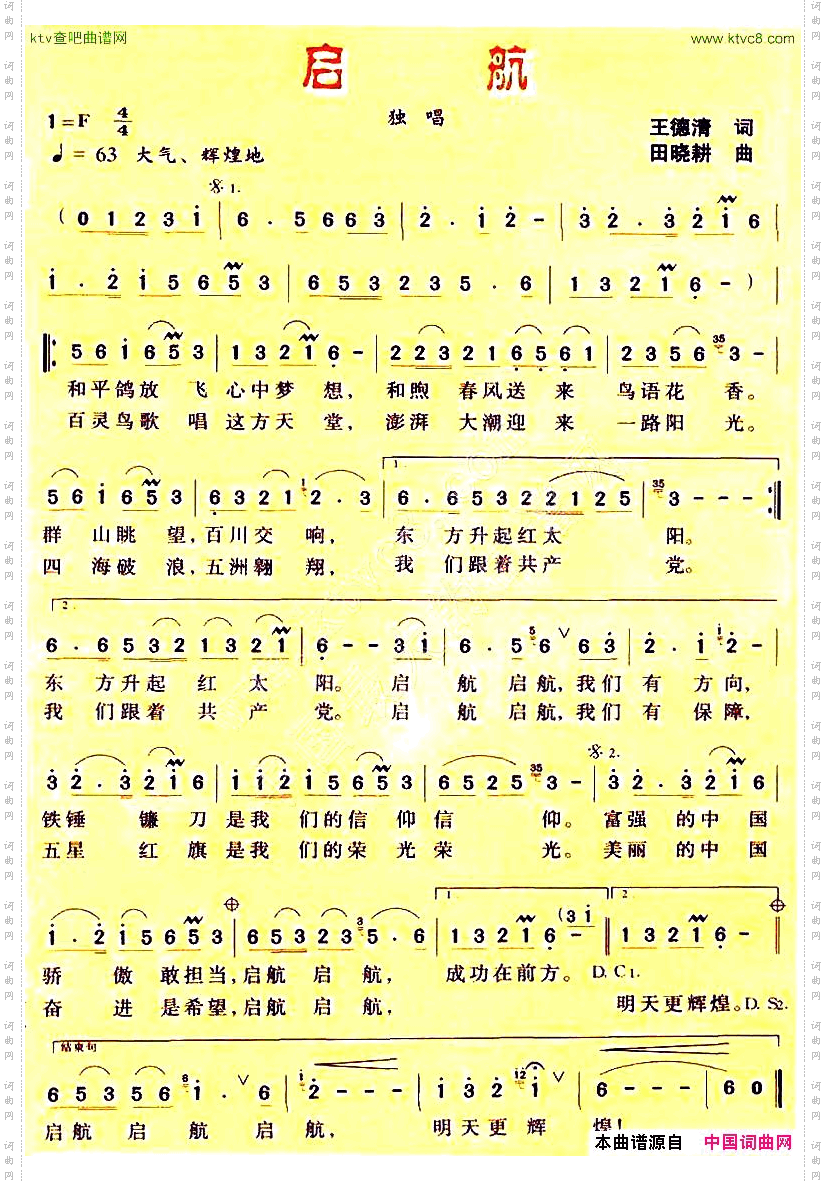 ktv查吧曲谱网 www.ktvc8.com
启航
1=F 4/4 独唱 王德清 词
♩=63 大气、辉煌地 田晓耕 曲
𝄋1.
(0 1 2 3 i | 6 · 5 6 6 3 | 2 · i 2 - | 3 2 · 3 2 i 6 |
i · 2 i 5 6 5 3 | 6 5 3 2 3 5 · 6 | 1 3 2 1 6 - ) |
5 6 i 6 5 3 | 1 3 2 1 6 - | 2 2 3 2 1 6 5 6 1 | 2 3 5 6 35 3 - |
和平鸽放 飞心中梦 想, 和煦 春风送 来 鸟语花 香。
百灵鸟歌 唱这方天 堂, 澎湃 大潮迎 来 一路阳 光。
1.
5 6 i 6 5 3 | 6 3 2 1 1 2 · 3 | 6 · 6 5 3 2 2 1 2 5 | 35 3 - - - :|
群 山眺 望,百川交 响, 东 方升起红太 阳。
四 海破 浪,五洲翱 翔, 我 们跟着共产 党。
2.
6 · 6 5 3 2 1 3 2 1 | 6 - - 3 i | 6 · 5 5 6 ∨ 6 3 | 2 · i i 2 - |
东 方升起 红 太 阳。 启 航 启航,我们 有 方向,
我 们跟着 共 产 党。 启 航 启航,我们 有 保障,
𝄋2.
3 2 · 3 2 i 6 | i i 2 i 5 6 5 3 | 6 5 2 5 35 3 - | 3 2 · 3 2 i 6 |
铁锤 镰 刀 是我 们的信 仰信 仰。 富强 的中国
五星 红 旗 是我 们的荣 光荣 光。 美丽 的中国
1. 2.
i · 2 i 5 6 5 3 | 6 5 3 2 3 3 5 · 6 | 1 3 2 1 6 - (3 i | 1 3 2 1 6 - ||
骄 傲 敢担当,启航 启 航, 成功在前方。 D.C1.
奋 进 是希望,启航 启 航, 明天更辉煌。D.S2.
结束句
6 5 3 5 6 6 i · ∨ 6 | i 2 - - - | i 3 2 12 i ∨ | 6 - - - | 6 0 ||
启航 启 航 启 航, 明天更 辉 煌!
本曲谱源自 中国词曲网
词曲网